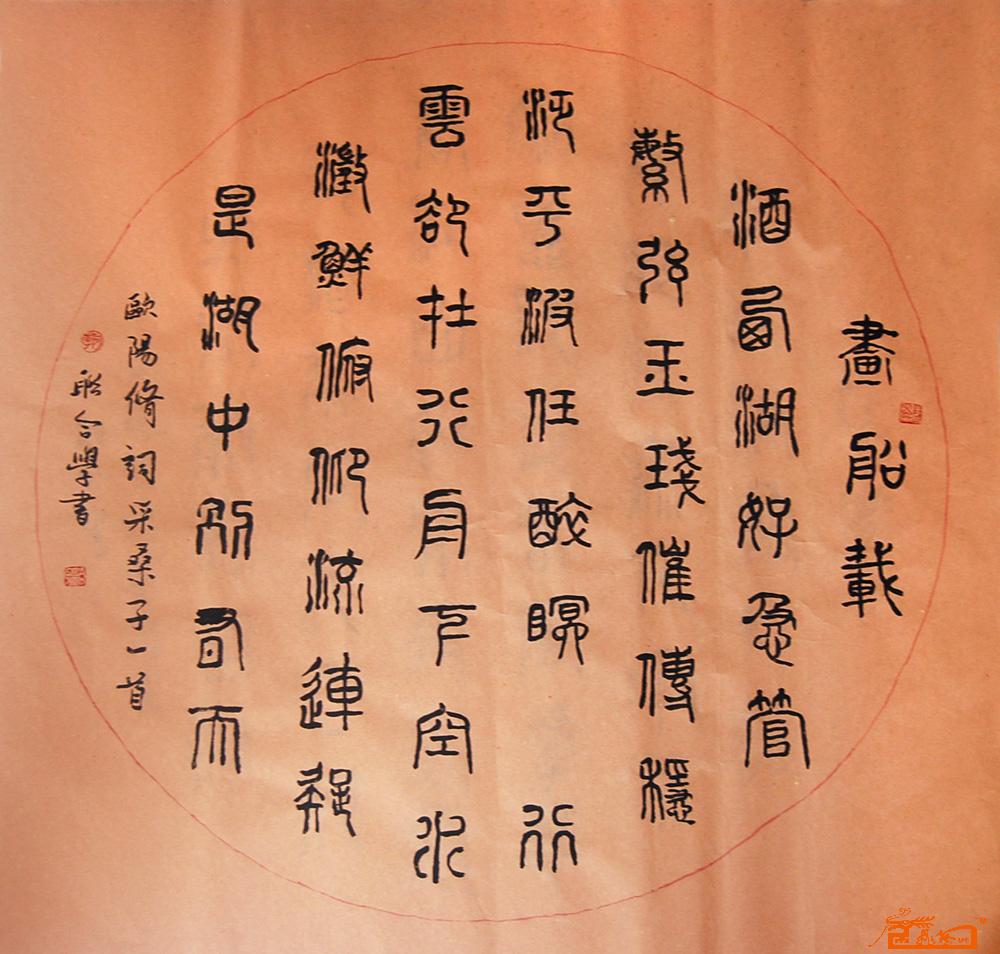 畫船載
酒西湖好急管
繁弦玉琖催傳穩
泛平波任醉眠行
雲卻在行舟下空水
澂鮮俯仰流連疑
是湖中別有天
歐陽脩詞采桑子一首
合學書